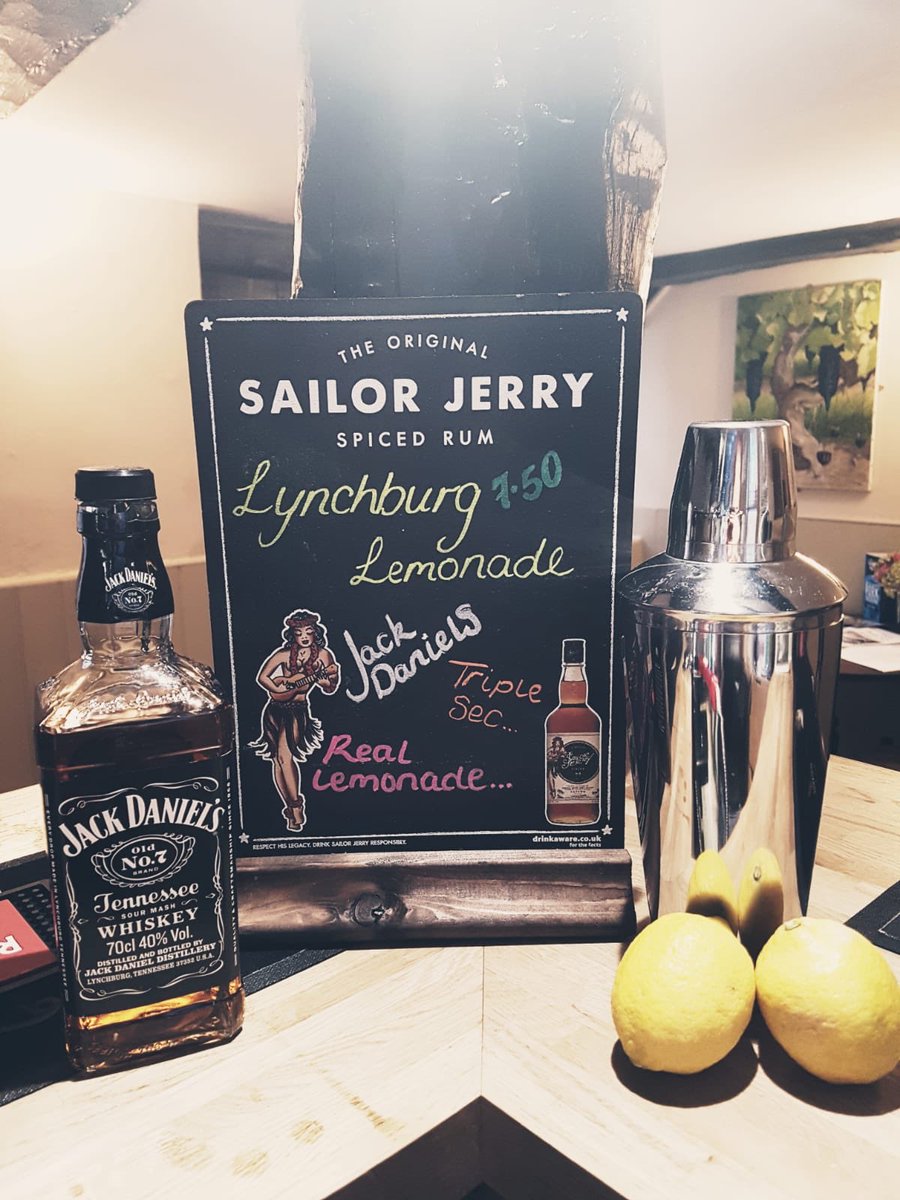 THE ORIGINAL
SAILOR JERRY
SPICED RUM
Lynchburg 7.50
Lemonade
Jack
Daniels
Triple
Sec...
Real
Lemonade...
RESPECT HIS LEGACY. DRINK SAILOR JERRY RESPONSIBLY.
drinkaware.co.uk
for the facts
Sailor
Jerry
JACK DANIEL'S
Old
No.7
JACK DANIEL'S
Old
No.7
BRAND
Tennessee
SOUR MASH
WHISKEY
70cl 40% Vol.
DISTILLED AND BOTTLED BY
JACK DANIEL DISTILLERY
LYNCHBURG, TENNESSEE 37352 U.S.A.
R